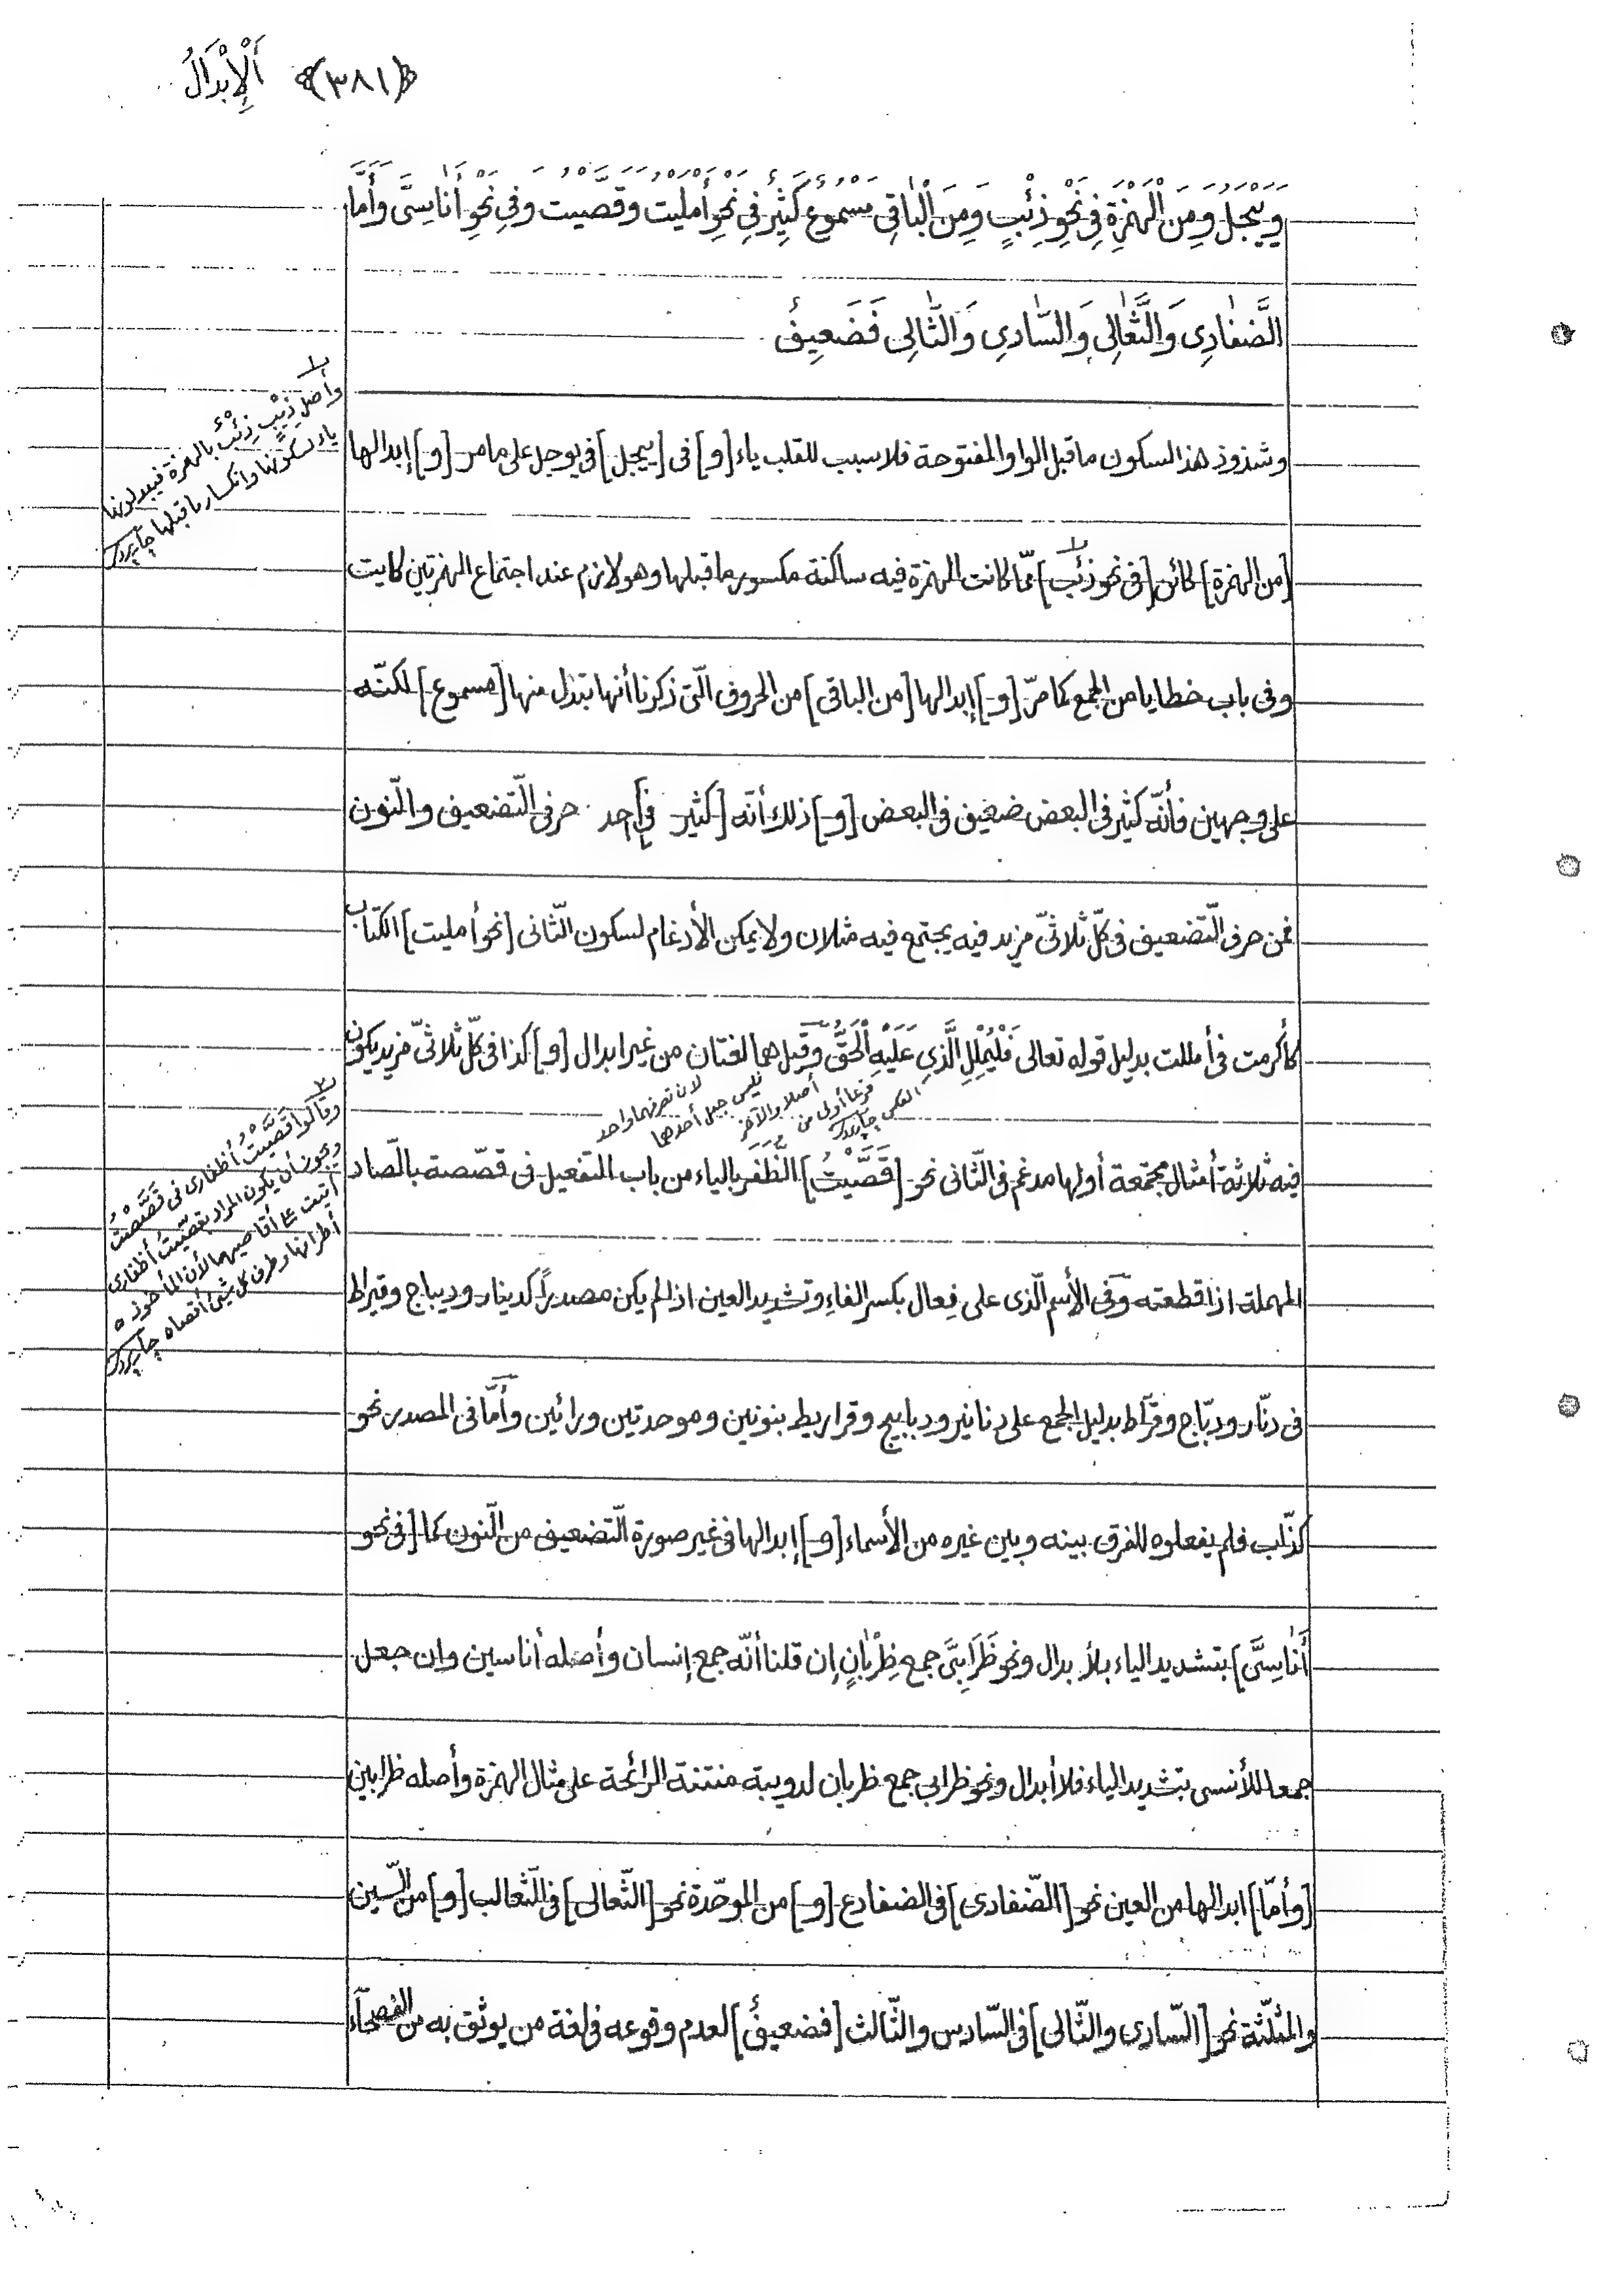 ﴿٣٨١﴾ اَلْإِبْدَالُ
وَيَيْجَلُ وَمِنَ الْهَمْزَةِ فِي نَحْوِ ذِئْبٍ وَمِنَ الْبَاقِي مَسْمُوعٌ كَثِيرٌ فِي نَحْوِ أَمْلَيْتُ وَقَصَّيْتُ وَفِي نَحْوِ أَنَاسِيَّ وَأَمَّا
الضَّفَادِي وَالثَّعَالِي وَالسَّادِي وَالثَّالِي فَضَعِيفٌ
وشذوذ هذا لسكون ما قبل الواو المفتوحة فلا سبب للقلب ياء [و] فى [ييجل] فى يوجل على ما مر [و] إبدالها
[من الهمزة] كائن [فى نحو ذئب] ممّا كانت الهمزة فيه ساكنة مكسور ما قبلها وهو لازم عند اجتماع الهمزتين كايت
وفى باب خطايا من الجمع كما مرّ [و] إبدالها [من الباقى] من الحروف الّتى ذكرنا أنها تبدل منها [مسموع] لكنّه
على وجهين فأنّه كثير فى البعض ضعيف فى البعض [و] ذلك أنّه [كثير فى] أحد حرفى التّضعيف والنّون
فمن حرف التّضعيف فى كلّ ثلاثىّ مزيد فيه يجتمع فيه مثلان ولا يمكن الأدغام لسكون الثّانى [نحو أمليت] الكتاب
كأكرمت فى أمللت بدليل قوله تعالى فَلْيُمْلِلِ الَّذِى عَلَيْهِ الْحَقُّ وَقِيل هما لغتان من غير ابدال [و] كذا فى كلّ ثلاثىّ مزيد يكون
فيه ثلاثة أمثال مجتمعة أولها مدغم فى الثّانى نحو [قَصَّيْتُ] الظُّفَرَ بالياء من باب التفعيل فى قصّصته بالصّاد
المهملة اذا قطعته وَفى الأسم الّذى على فِعال بكسر الفاءِ وتشديد العين اذا لم يكن مصدراً كدينار وديباج وقيراط
فى دنّار ودبّاج وقرّاط بدليل الجمع على دنانير ودبابيج وقراريط بنونين وموحدتين ورائين وأَمَّا فى المصدر نحو
كذّاب فلم يفعلوه للفرق بينه وبين غيره من الأسماء [و] إبدالها فى غير صورة التّضعيف من النّون كما [فى نحو
أَنَاسِيَّ] بتشديد الياء بلأبدال ونحو ظَرَابِيَّ جمع ظِرْبَانٍ إن قلنا أنّه جمع إنسان وأصله أناسين وان جعل
جمعا للأنسى بتشديد الياء فلا أبدال ونحو ظرابى جمع ظربان لدويبة منتنة الرائحة على مثال الهمزة وأصله ظرابين
[وأمّا] ابدالها من العين نحو [الضّفادى] فى الضفادع [و] من الموحّدة نحو [الثّعالى] فى الثّعالب [و] من السّين
والمثلّثة نحو [السّادى والثّالى] فى السّادس والثّالث [فضعيفٌ] لعدم وقوعه فى لغة من يوثق به من الفصحآء
وأصل ذِيْبٍ ذِئْبٌ بالهمزة فيبدلونها
ياء لسكونها وانكسار ما قبلها جاربردى
لان تصرفهما واحد
فليس جعل أحدهما
أصلا والآخر
فرعا أولى من
العكس جاربردى
وقالوا قَصَّيْتُ أظفارى فى قَصَّصْتُ
ويجوز أن يكون المراد بقصّيت أظفارى
أتيت على أقاصيها لأن المأخوذه
أطرافها وطرف كل شيئ أقصاه جاربردى